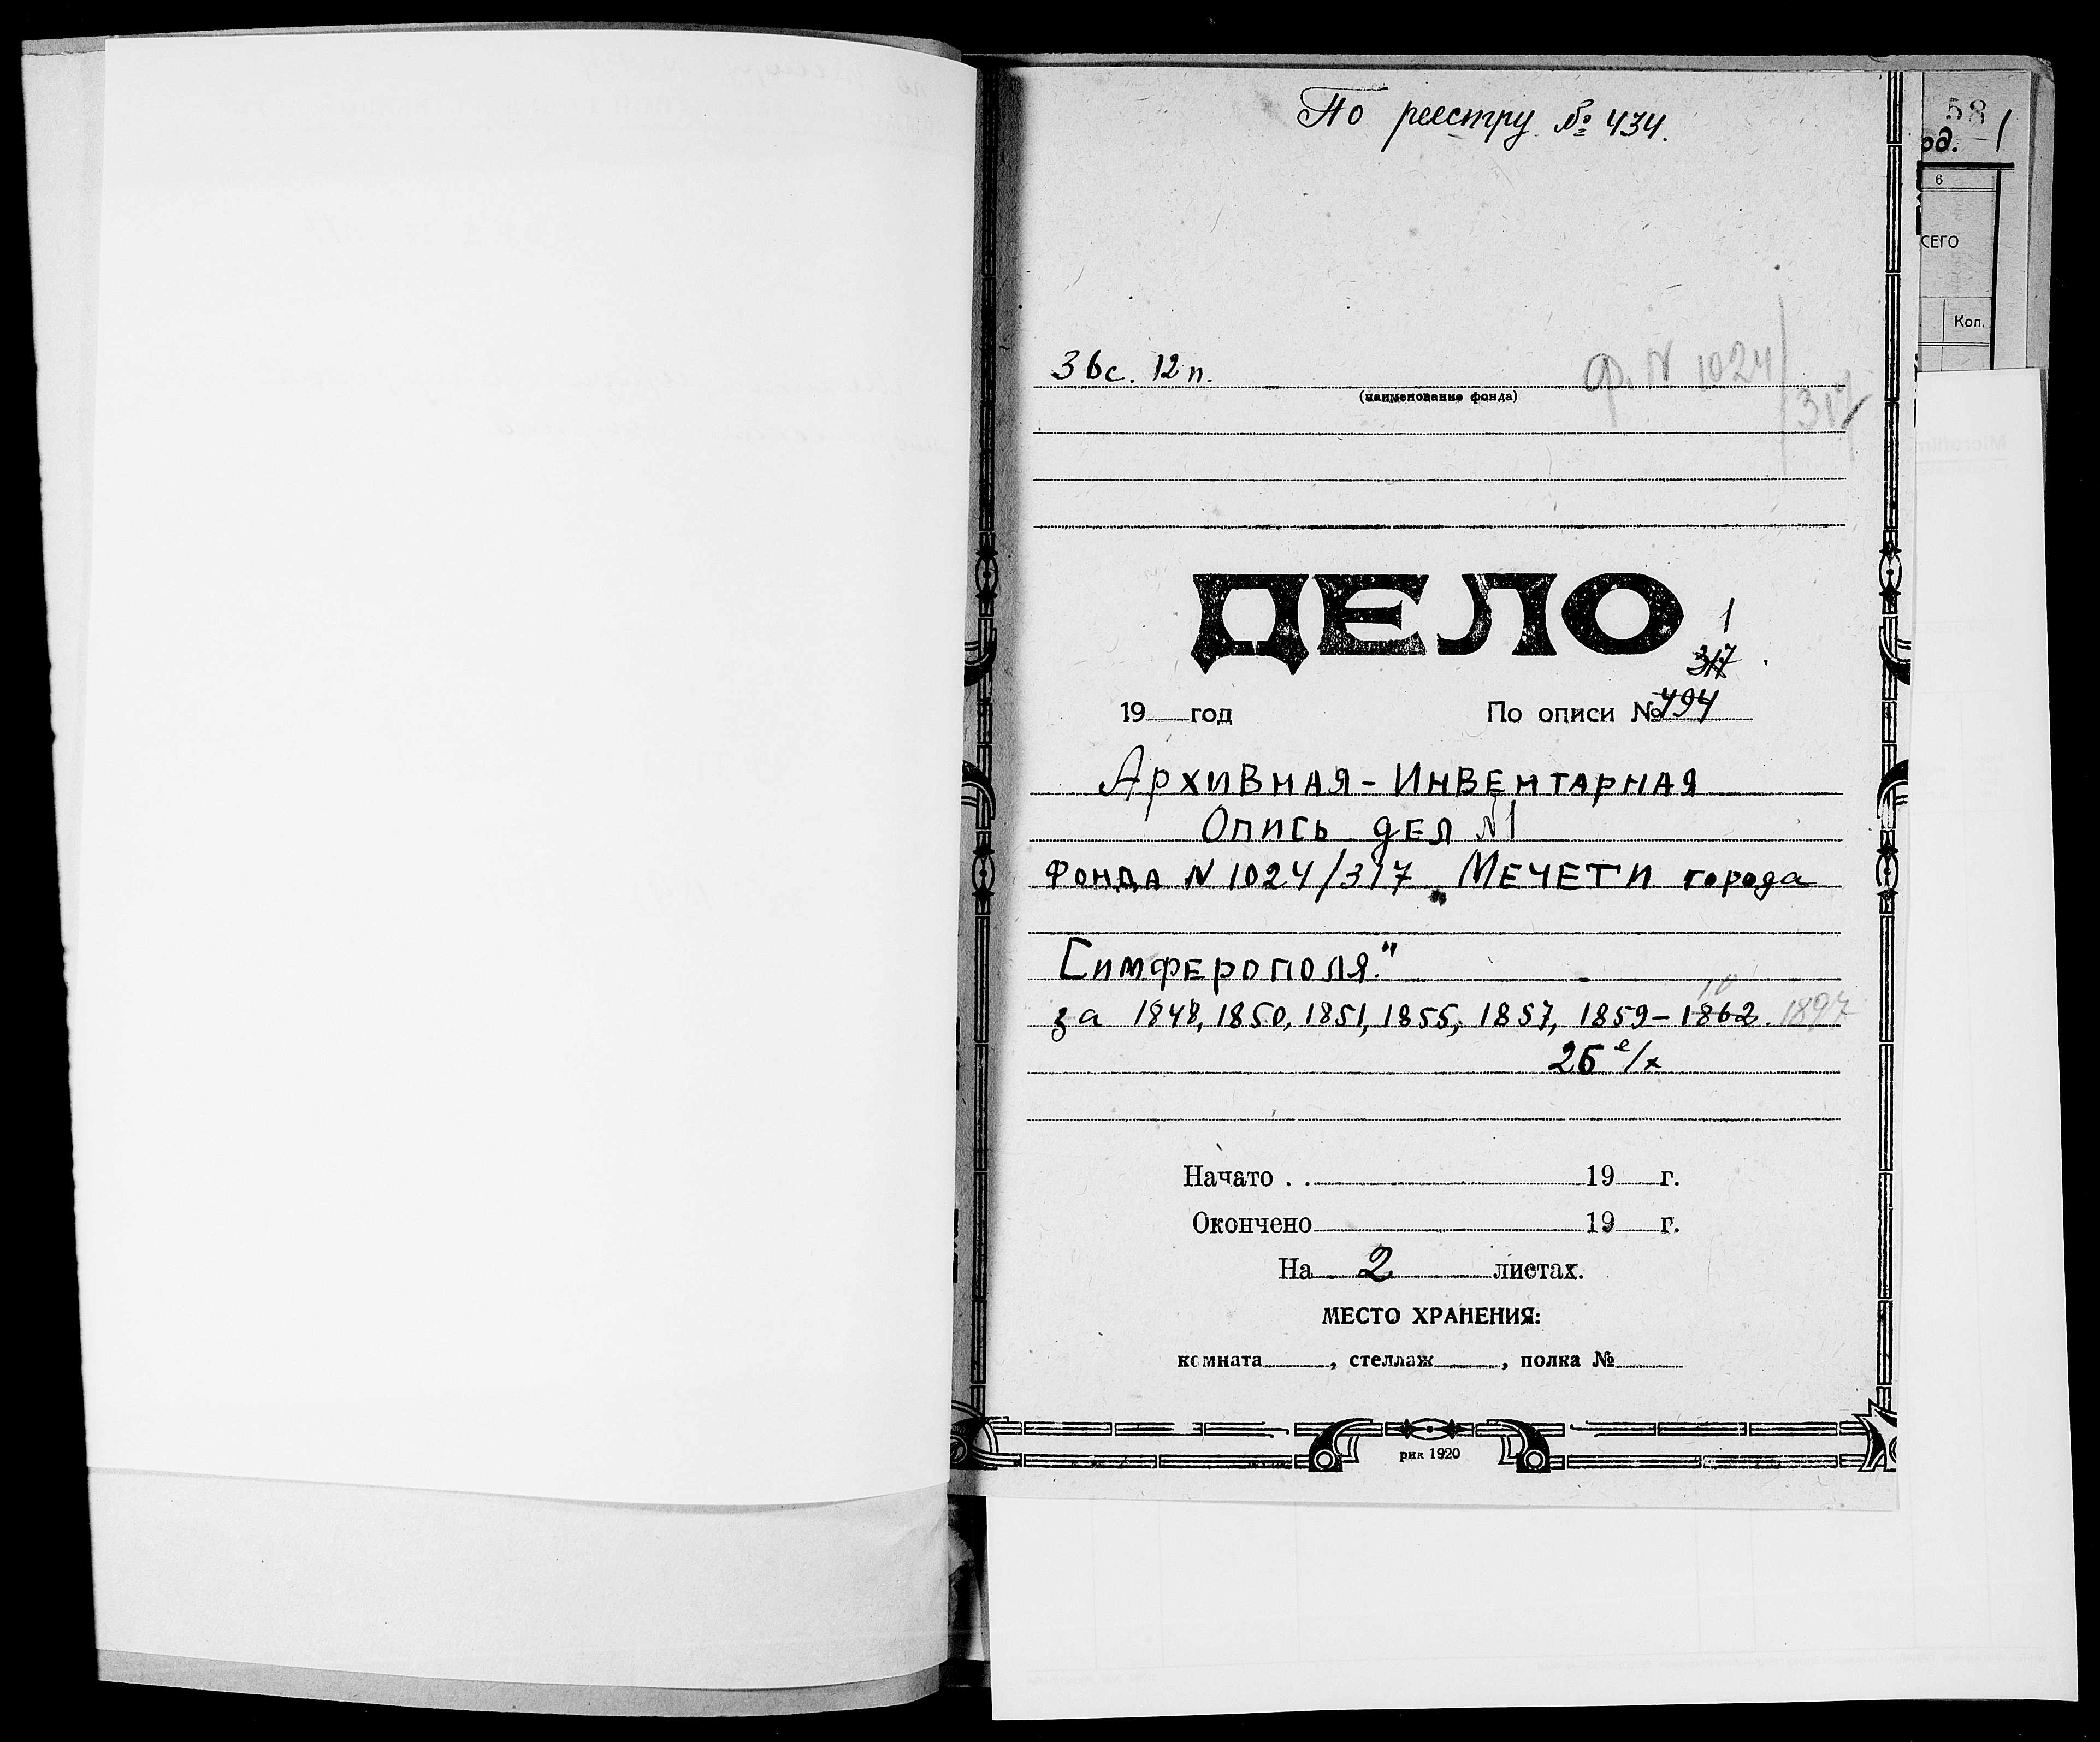 По реестру № 434.
58
од. 1
6
СЕГО
Коп.
3 вс. 12 п.
ф. N 1024/317
(наименование фонда)
ДЕЛО
1
317
19 год По описи № 494
Архивная-Инвентарная
Опись дел N1
Фонда N 1024/317 „Мечети города
Симферополя."
за 1848, 1850, 1851, 1855, 1857, 1859-1862. 1897
26 е/х
Начато . . 19 г.
Окончено 19 г.
На 2 листах.
МЕСТО ХРАНЕНИЯ:
комната , стеллаж , полка №
рик 1920